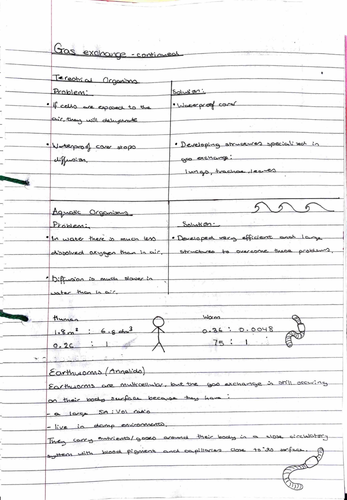 Gas exchange - continued
Terrestrial Organisms
Problem:
Solution:
• If cells are exposed to the
air, they will dehydrate
• Waterproof cover
• Waterproof cover stops
diffusion.
• Developing structures specialised in
gas exchange:
lungs, tracheae, leaves
Aquatic Organisms
Problem:
Solution:
• In water there is much less
dissolved oxygen than in air.
• Developed very efficient and large
structures to overcome these problems.
• Diffusion is much slower in
water than in air.
Human
1.8m² : 6.8dm³
0.26 : 1
Worm
0.36 : 0.0048
75 : 1
Earthworms (Annelida)
Earthworms are multicellular, but the gas exchange is still occuring
on their body surface because they have:
- a large SA:Vol ratio
- live in damp environments.
They carry nutrients/gases around their body in a close circulatory
system with blood pigment and capillaries close to